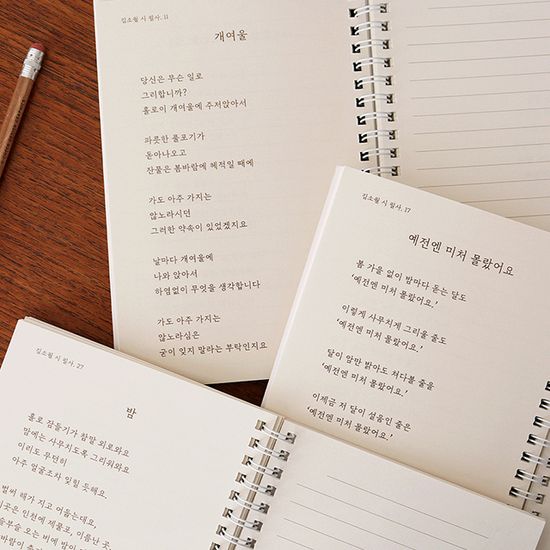 김소월 시 필사. 11
개여울
당신은 무슨 일로
그리합니까?
홀로이 개여울에 주저앉아서
파릇한 풀포기가
돋아나오고
잔물은 봄바람에 헤적일 때에
가도 아주 가지는
않노라시던
그러한 약속이 있었겠지요
날마다 개여울에
나와 앉아서
하염없이 무엇을 생각합니다
가도 아주 가지는
않노라심은
굳이 잊지 말라는 부탁인지요
김소월 시 필사. 17
예전엔 미처 몰랐어요
봄 가을 없이 밤마다 돋는 달도
‘예전엔 미처 몰랐어요.’
이렇게 사무치게 그리울 줄도
‘예전엔 미처 몰랐어요.’
달이 암만 밝아도 쳐다볼 줄을
‘예전엔 미처 몰랐어요.’
이제금 저 달이 설움인 줄은
‘예전엔 미처 몰랐어요.’
김소월 시 필사. 27
밤
홀로 잠들기가 참말 외로와요
밤에는 사무치도록 그리워와요
이리도 무던히
아주 얼굴조차 잊힐 듯해요.
벌써 해가 지고 어둡는데요,
이곳은 인천에 제물포, 이름난 곳,
부슬부슬 오는 비에 밤이
바람이